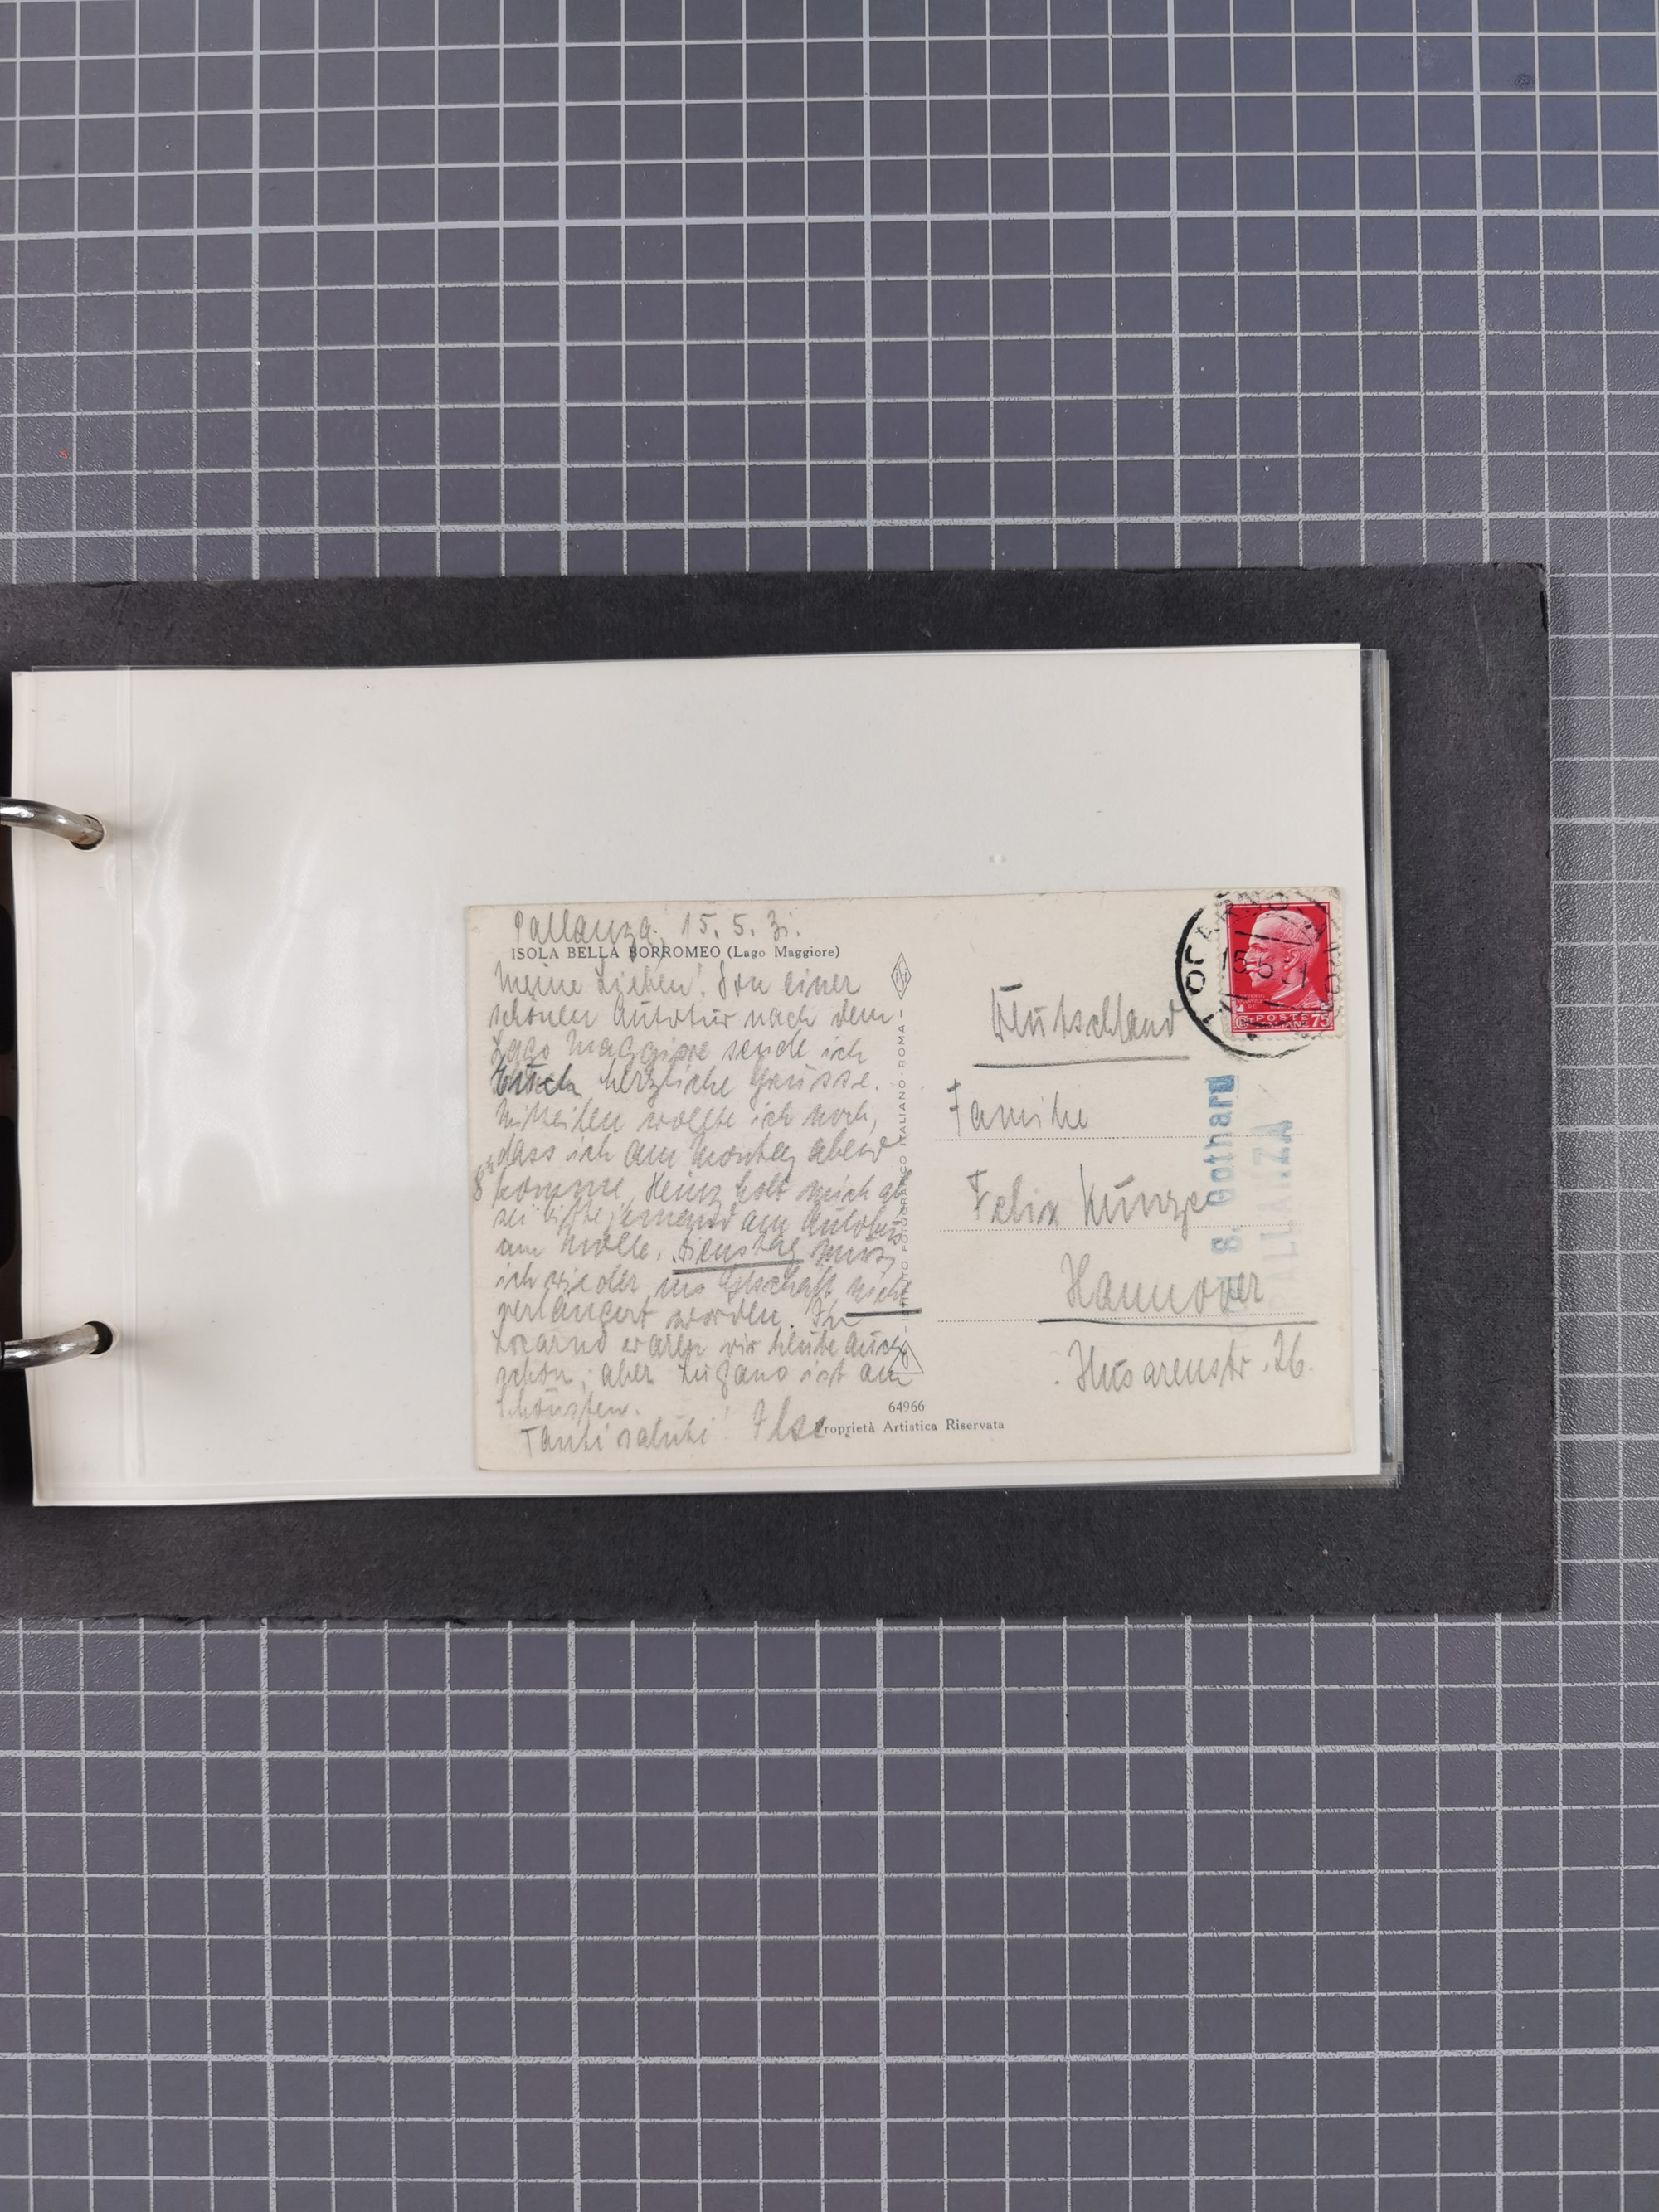 Pallanza, 15. 5. 31.
ISOLA BELLA BORROMEO (Lago Maggiore)
Meine Lieben! Von einer
schönen Autotur nach dem
Lago Maggiore sende ich
Euch herzliche Grüsse.
Mitteilen wollte ich noch,
dass ich am Montag abend
komme, Heinz holt mich ab
sei bitte jemand am Autobus
am Molle. Dienstag muss
ich wieder ins Geschäft nicht
verlängert worden. In
Locarno waren wir heute auch
schon, aber Lugano ist am
schönsten.
Tanti saluti! Ilse.
ISTITUTO FOTOGRAFICO ITALIANO - ROMA -
64966
Proprietà Artistica Riservata
15 5
POSTE
75
Deutschland
Familie
Felix Kunze
Hannover
Husarenstr. 26.
S. Gothard
PALLANZA